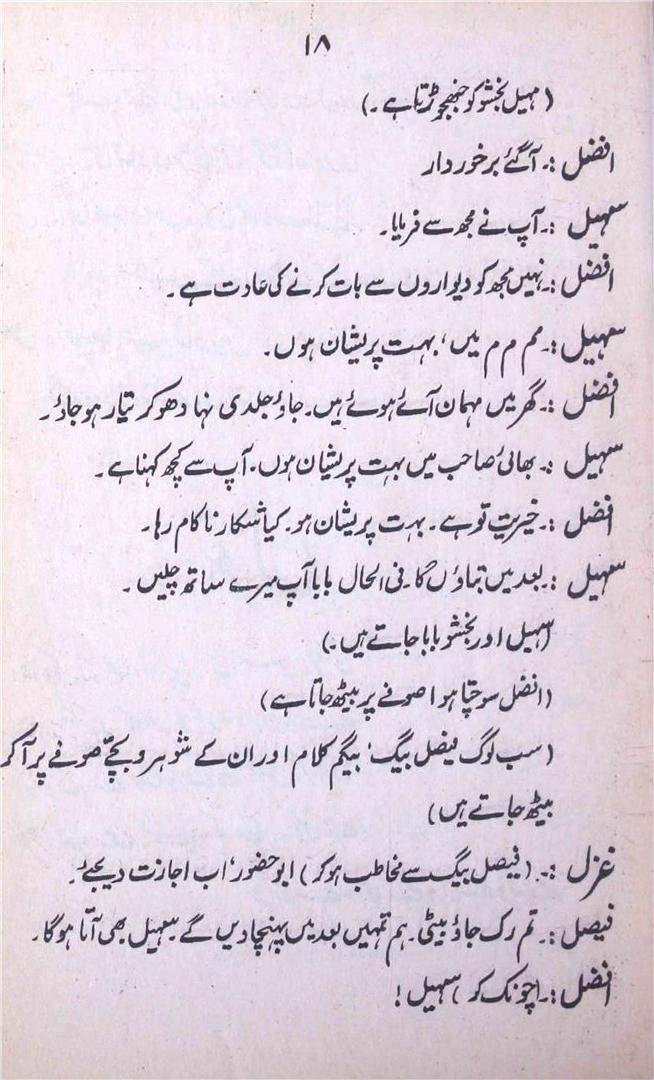 ۱۸
(سہیل بخشو کو جھنجھوڑتا ہے۔)
افضل :۔ آگئے برخوردار
سہیل :۔ آپ نے مجھ سے فرمایا۔
افضل :۔ نہیں مجھ کو دیواروں سے بات کرنے کی عادت ہے۔
سہیل :۔ مم م م میں، بہت پریشان ہوں۔
افضل :۔ گھر میں مہمان آئے ہوئے ہیں۔ جاؤ جلدی نہا دھو کر تیار ہو جاؤ۔
سہیل :۔ بھائی صاحب میں بہت پریشان ہوں۔ آپ سے کچھ کہنا ہے۔
افضل :۔ خیریت تو ہے۔ بہت پریشان ہو۔ کیا شکار ناکام رہا۔
سہیل :۔ بعد میں بتاؤں گا۔ فی الحال بابا آپ میرے ساتھ چلیں۔
(سہیل اور بخشو بابا جاتے ہیں۔)
(افضل سوچتا ہوا صوفے پر بیٹھ جاتا ہے)
(سب لوگ فیصل بیگ، بیگم کلام اور ان کے شوہر و بچے صوفے پر آ کر
بیٹھ جاتے ہیں)
غزل :۔ (فیصل بیگ سے مخاطب ہو کر) ابو حضور، اب اجازت دیجئے۔
فیصل :۔ تم رک جاؤ بیٹی۔ ہم تمہیں بعد میں پہنچا دیں گے۔ سہیل بھی آتا ہوگا۔
افضل :۔ (چونک کر) سہیل!